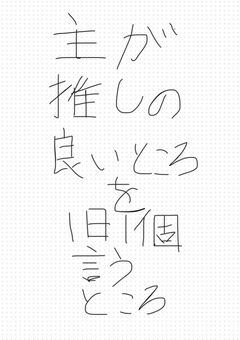 主が
推しの
良いところ
を
1日1個
言う
ところ